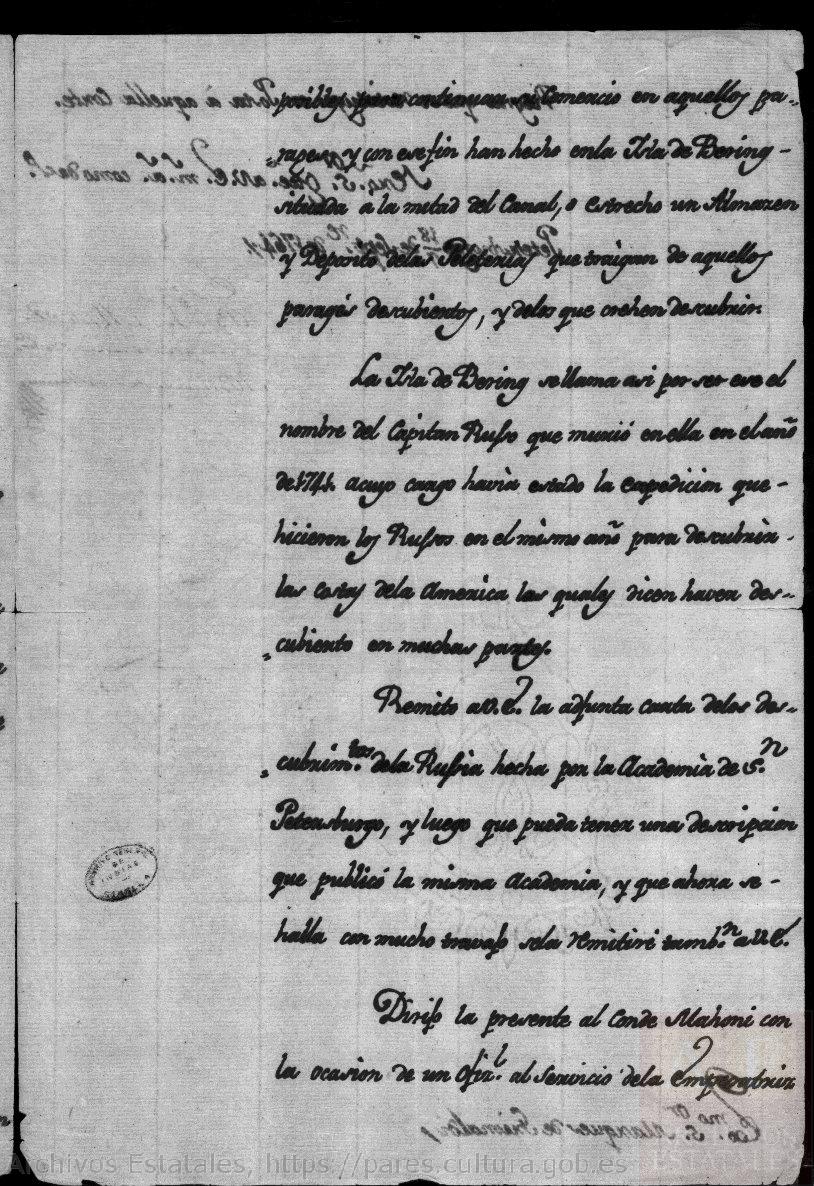 posibles para continuar el Comercio en aquellos pa-
rages, y con ese fin han hecho en la Isla de Bering -
situada a la mitad del Canal, o estrecho un Almazen
y Deposito delas Peleterias que traigan de aquellos
parages descubiertos, y delos que crehen descubrir.
La Isla de Bering se llama asi por ser ese el
nombre del Capitan Russo que murió en ella en el año
de 1741. acuyo cargo havia estado la expedicion que -
hicieron los Russos en el mismo año para descubrir -
las costas dela America las quales dicen haver des-
cubierto en muchas partes.
Remito a V.E. la adjunta carta delos des-
cubrim.tos dela Russia hecha por la Academia de S.n
Petersburgo, y luego que pueda tener una descripcion
que publicó la misma Academia, y que ahora se -
halla con mucho travajo sela remitiré tamb.n a V.E.
Dirijo la presente al Conde Mahoni con
la ocasion de un Ofiz.l al Servicio dela Emperatriz
Exc.mo S.or Marques de Grimaldi,
Archivos Estatales, https://pares.cultura.gob.es